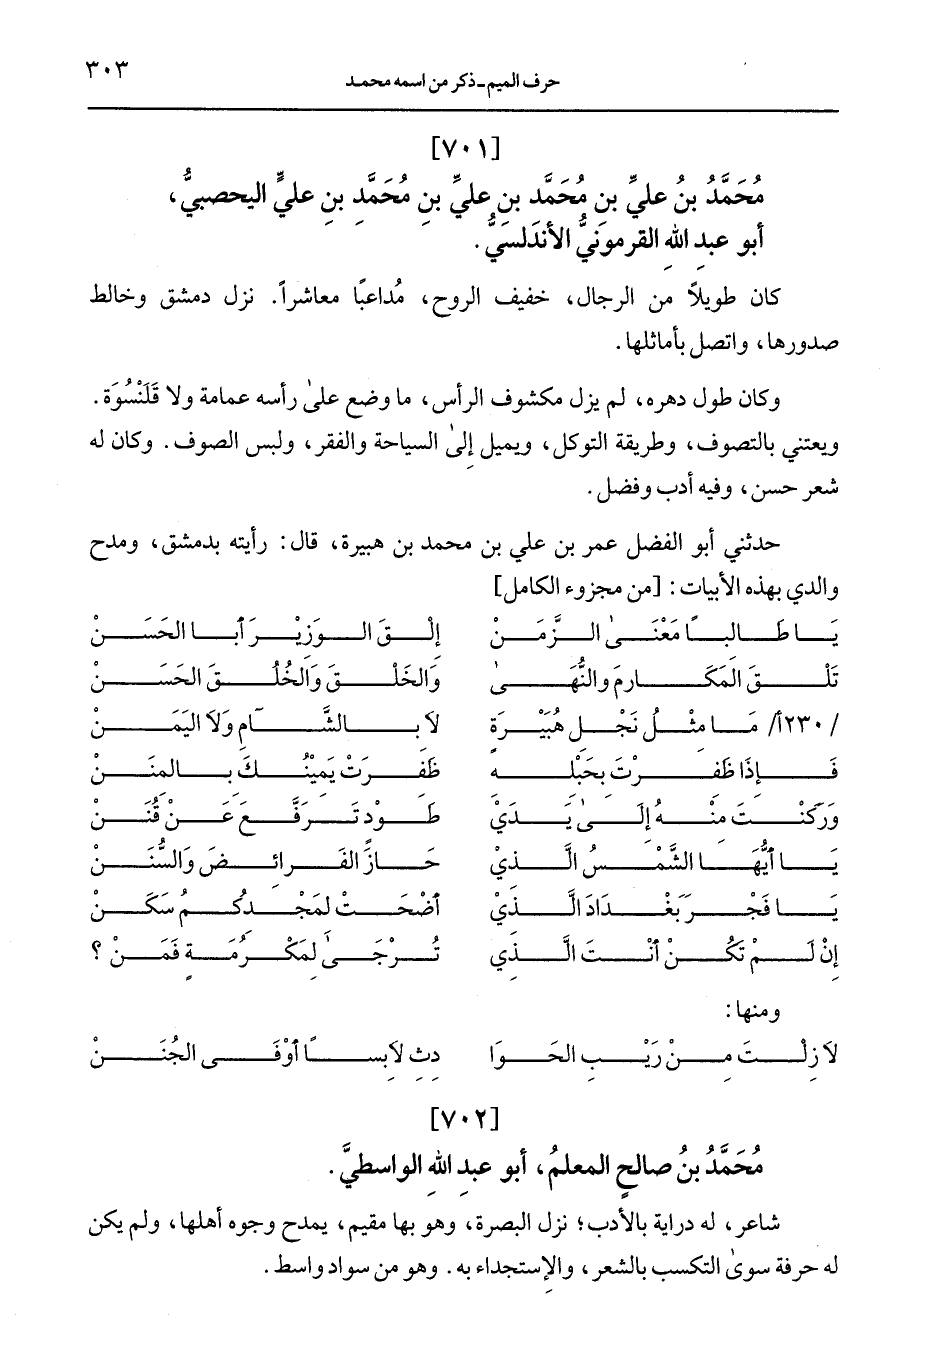 حرف الميم ـ ذكر من اسمه محمد ٣٠٣
[٧٠١]
مُحَمَّدُ بنُ عليِّ بنِ مُحَمَّدِ بنِ عليِّ بنِ مُحَمَّدِ بنِ عليٍّ اليحصبيُّ،
أبو عبدِ اللهِ القرمونيُّ الأندَلسيُّ.
كان طويلاً من الرجال، خفيف الروح، مُداعبًا معاشراً. نزل دمشق وخالط
صدورها، واتصل بأماثلها.
وكان طول دهره، لم يزل مكشوف الرأس، ما وضع علىٰ رأسه عمامة ولا قَلَنْسُوَة.
ويعتني بالتصوف، وطريقة التوكل، ويميل إلىٰ السياحة والفقر، ولبس الصوف. وكان له
شعر حسن، وفيه أدب وفضل.
حدثني أبو الفضل عمر بن علي بن محمد بن هبيرة، قال: رأيته بدمشق، ومدح
والدي بهذه الأبيات: [من مجزوء الكامل]
يَا طَالبًا مَعْنَىٰ الزَّمَنْ إلْقَ الوَزِيْرَ أبَا الحَسَنْ
تَلْقَ المَكَارِمَ والنُّهَىٰ وَالخَلْقَ وَالخُلُقَ الحَسَنْ
/ ٢٣٠أ/ مَا مِثْلُ نَجْلِ هُبَيْرَةٍ لاَ بِالشَّآمِ وَلاَ اليَمَنْ
فَإِذَا ظَفِرْتَ بِحَبْلِهِ ظَفِرَتْ يَمِيْنُكَ بِالمِنَنْ
وَرَكَنْتَ مِنْهُ إِلَىٰ يَدَيْ طَوْدٍ تَرَفَّعَ عَنْ قُنَنْ
يَا أيُّهَا الشَّمْسُ الَّذِيْ حَازَ الفَرائِضَ وَالسُّنَنْ
يَا فَجْرَ بَغْدَادَ الَّذِيْ أضْحَتْ لِمَجْدِكُمُ سَكَنْ
إنْ لَمْ تَكُنْ أنْتَ الَّذِي تُرْجَىٰ لِمَكْرُمَةٍ فَمَنْ؟
ومنها:
لاَ زِلْتَ مِنْ رَيْبِ الحَوَا دِثِ لاَبِسًا أوْفَى الجُنَنْ
[٧٠٢]
مُحَمَّدُ بنُ صالحٍ المعلمُ، أبو عبدِ اللهِ الواسطيُّ.
شاعر، له دراية بالأدب؛ نزل البصرة، وهو بها مقيم، يمدح وجوه أهلها، ولم يكن
له حرفة سوىٰ التكسب بالشعر، والإستجداء به. وهو من سواد واسط.